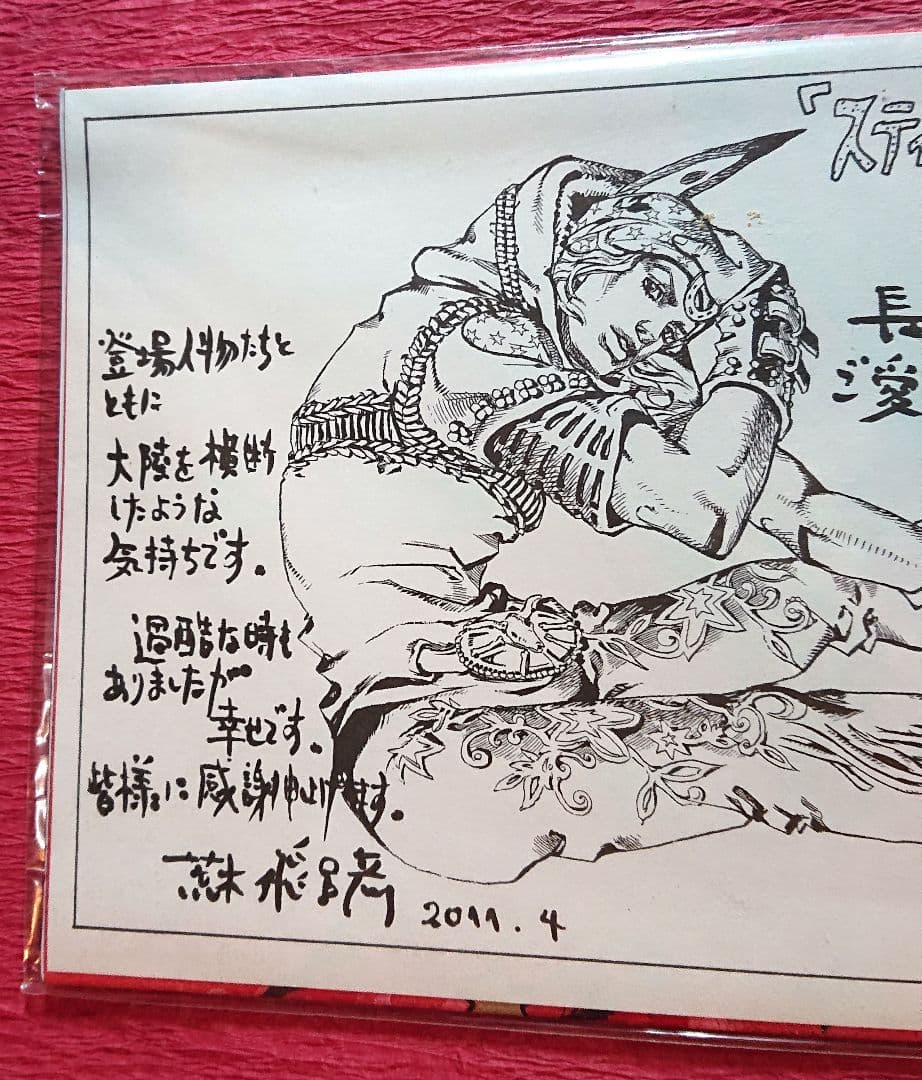 『スティ
長
ご愛
登場人物たちと
ともに
大陸を横断
したような
気持ちです。
過酷な時も
ありましたが
幸せです。
皆様に感謝申し上げます。
荒木飛呂彦
2011.4